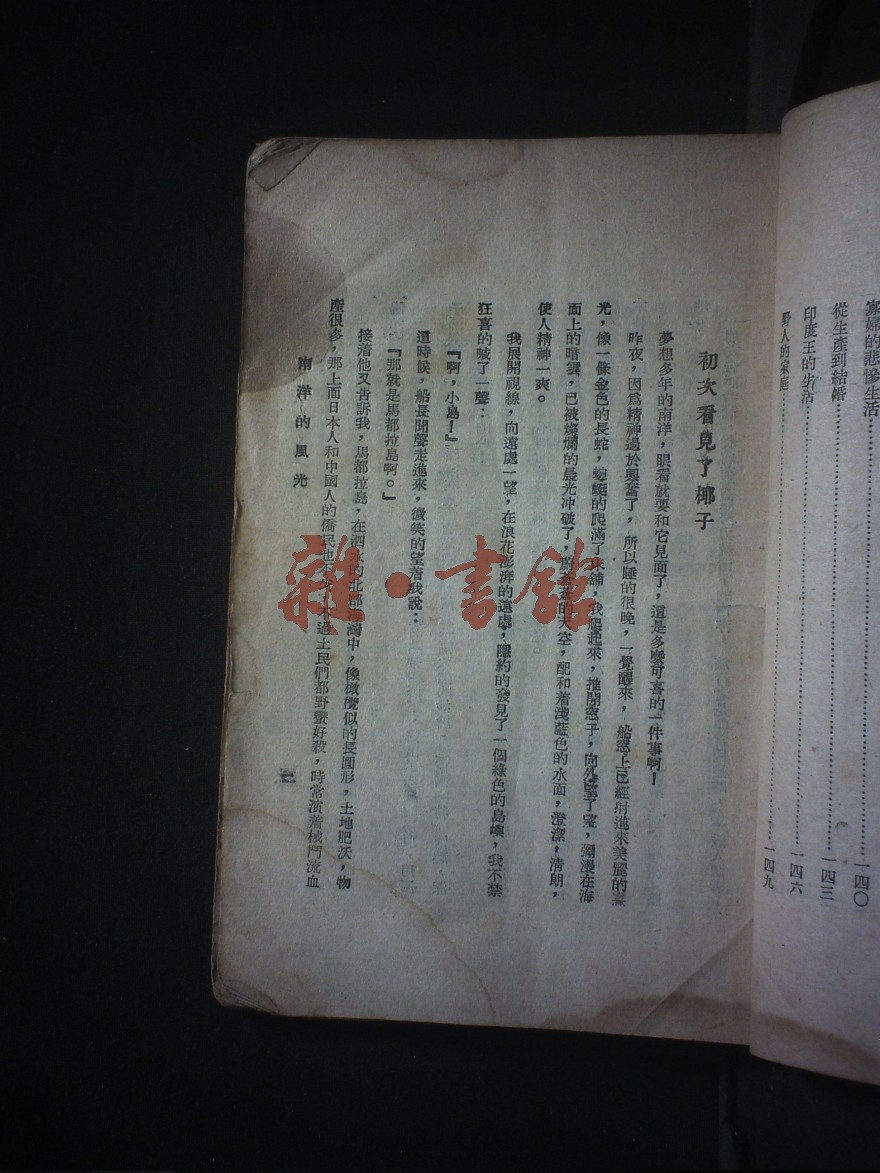 寡婦的悲慘生活 一四〇
從生產到結婚 一四三
印度王的生活 一四六
野人的家庭 一四九
初次看見了椰子
夢想多年的南洋，眼看就要和它見面了，這是多麼可喜的一件事啊！
昨夜，因爲精神過於興奮了，所以睡的很晚，一覺醒來，船窓上已經射進來美麗的
光，像一條金色的長蛇，蜿蜒的爬滿了床舖，我爬起來，推開窓子，向外望了望，彌漫在海
面上的暗雲，已被燦爛的晨光冲破了，蔚蒼蒼的天空，配和着淺藍色的水面，澄潔，清朗，
使人精神一爽。
我展開視線，向遠處一望，在浪花澎湃的遠處，隱約的發見了一個綠色的島嶼，我不禁
狂喜的喊了一聲：
『啊，小島！』
這時候，船長開聲走進來，微笑的望着我說：
『那就是馬都拉島啊。』
接着他又告訴我，馬都拉島，在泗水的北部海灣中，像橄欖似的長圓形，土地肥沃，物
產很多，那上面日本人和中國人的僑民也不少，不過土民們都野蠻好殺，時常演着械鬥流血
南洋的風光
雜·書館